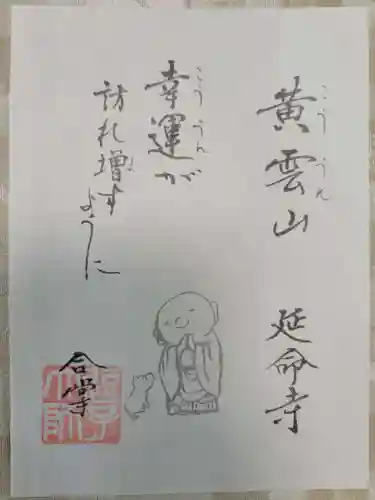 黄雲山 延命寺
こううん
幸運が
こううん
訪れ増す
ように
合掌